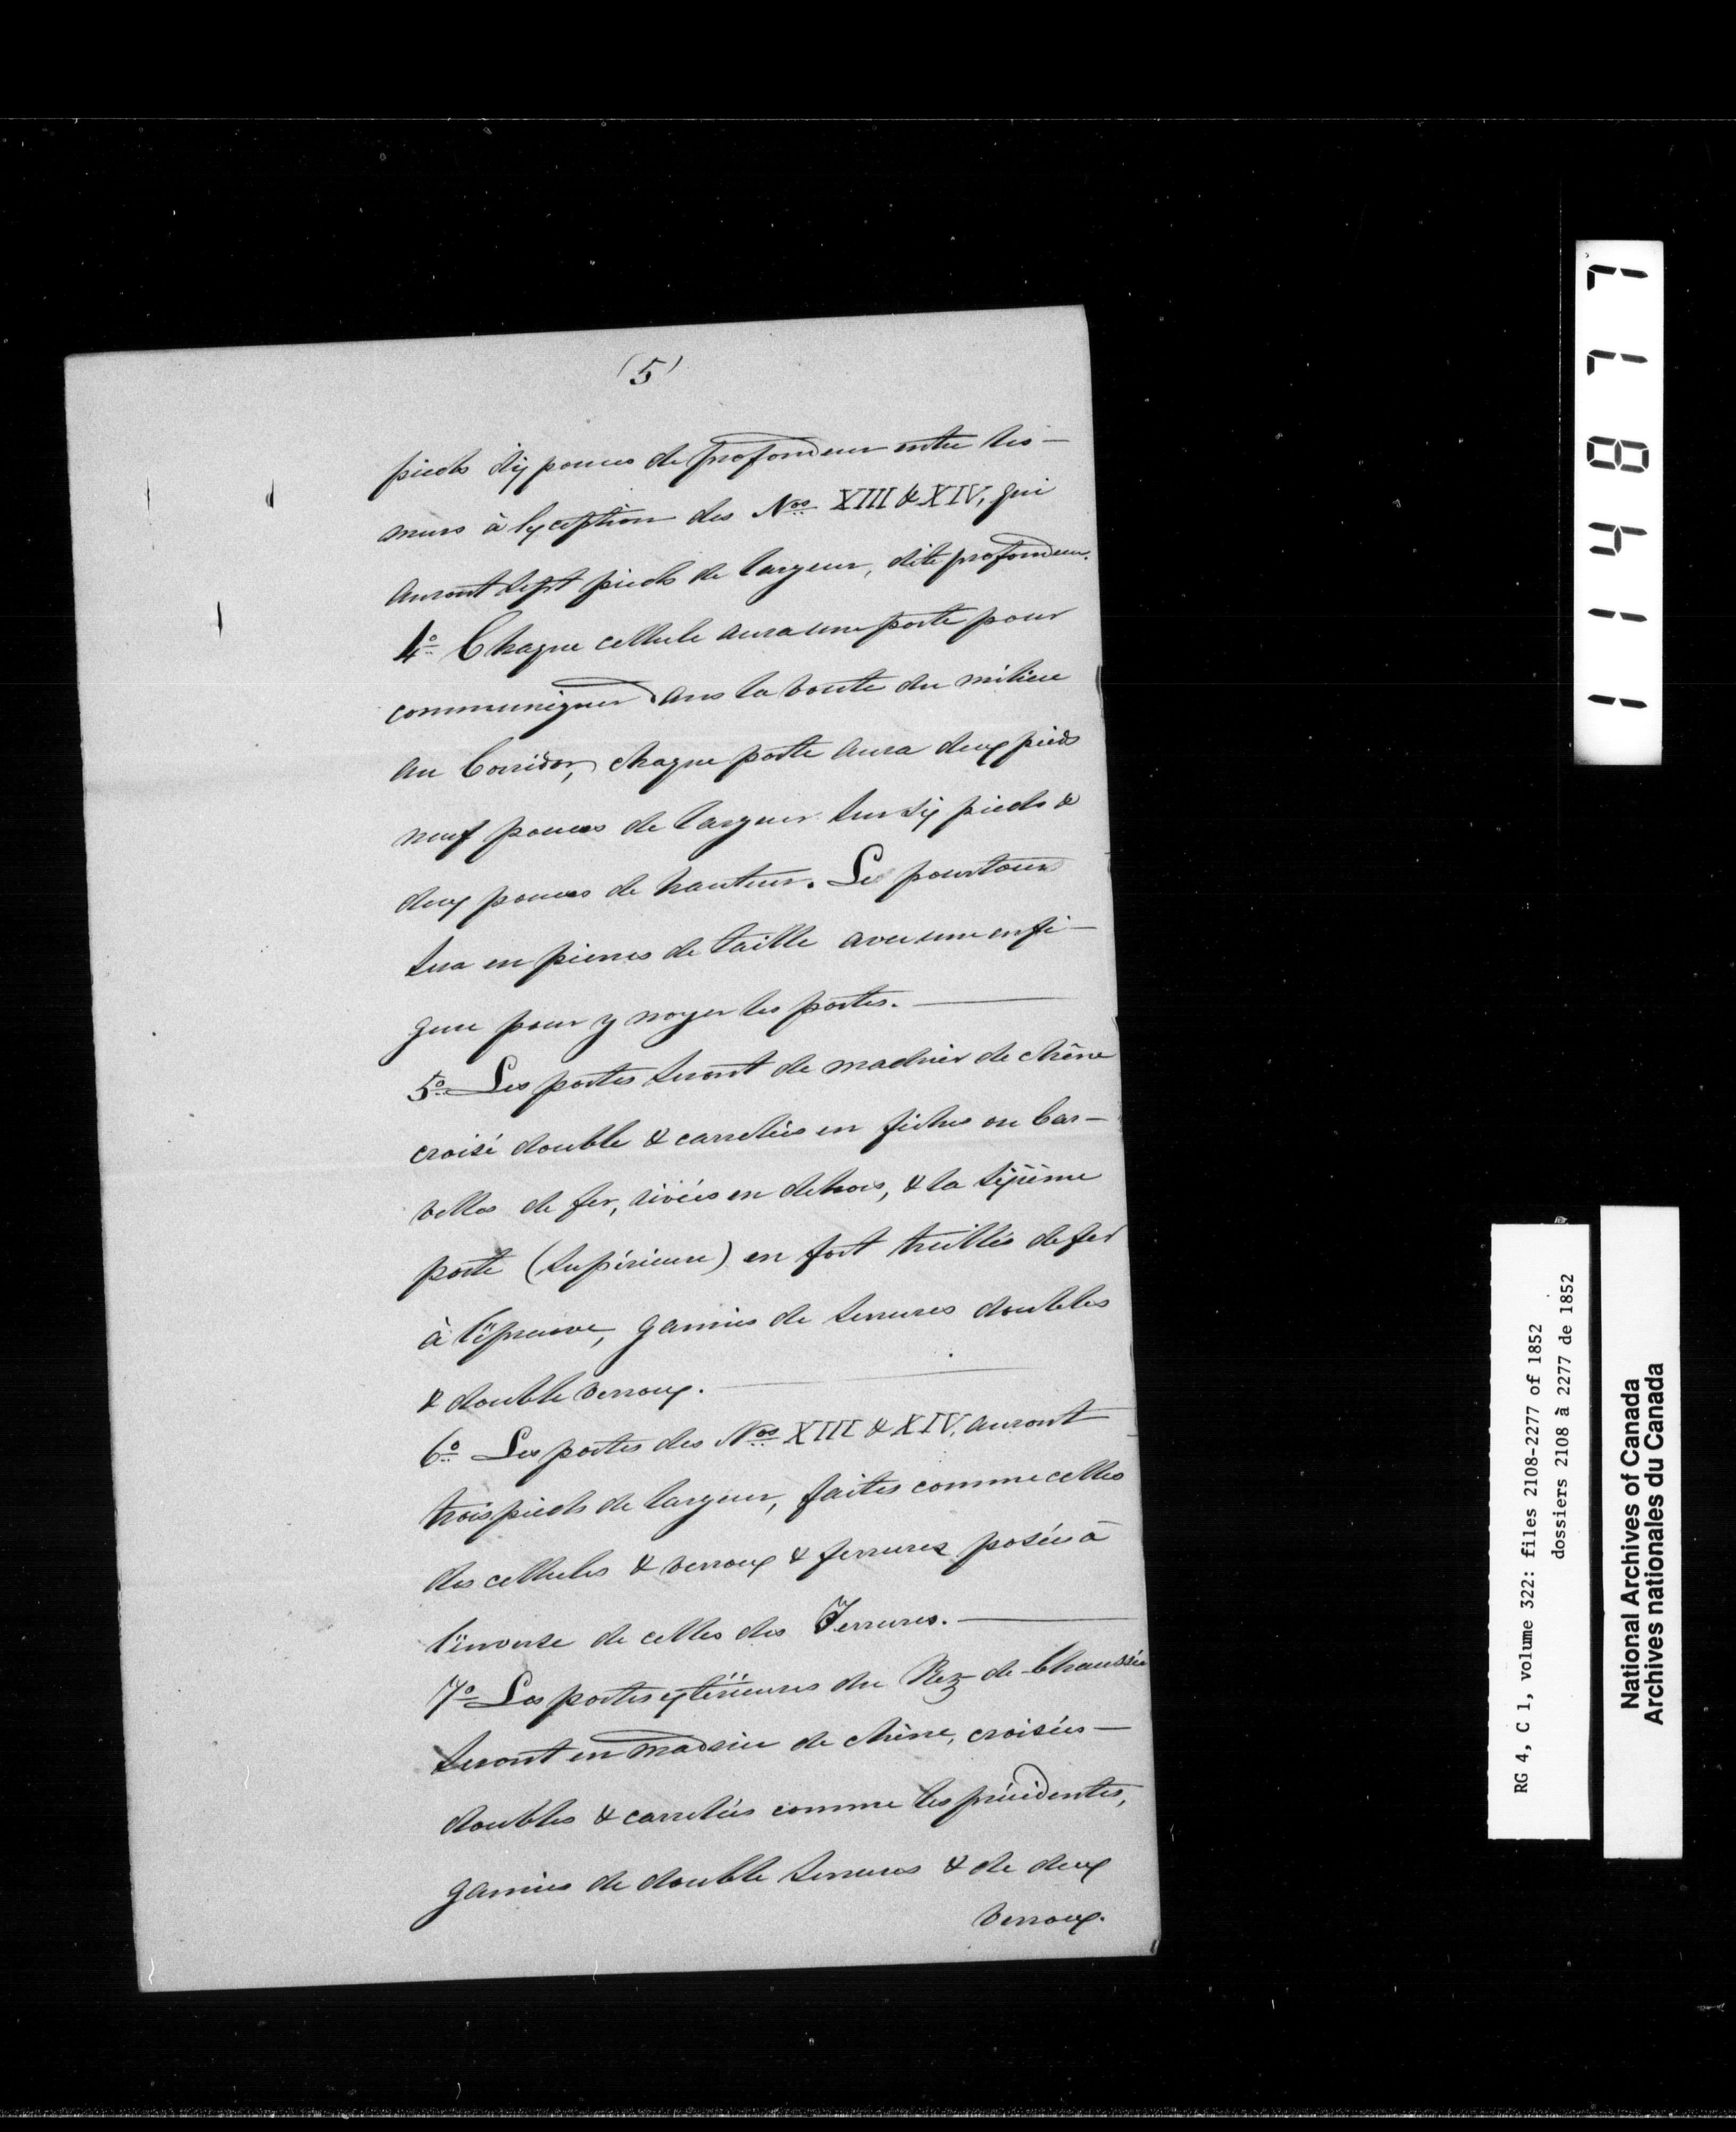 (5)
pieds dix pouces de profondeur entre les —
murs à l'exception des Nos XIII & XIV, qui
auront sept pieds de largeur, dite profondeur.
4o Chaque cellule aura une porte pour
communiquer dans la voute du milieu
au Corridor, chaque porte aura deux pieds
neuf pouces de largeur sur six pieds &
deux pouces de hauteur. Le pourtour
sera en pierres de taille avec une
pour y noyer les portes. —
5o Les portes seront de madrier de chêne
croisé double & carrelées en fiches ou Car-
velles de fer, rivées en dehors, & la sixième
porte (supérieure) en fort treillis de fer
à l'épreuve, garnies de serrures doubles
& double verroux. —
6o Les portes des Nos XIII & XIV, auront
trois pieds de largeur, faites comme celles
des cellules & verroux & ferrures posées à
l'inverse de celles des Ferrures. —
7o Les portes extérieures du Rez-de-Chaussée
seront en madrier de chêne, croisées —
doubles & carrelées comme les précédentes,
garnies de double serrures & de deux
verroux.
114877
RG 4, C 1, volume 322: files 2108-2277 of 1852
dossiers 2108 à 2277 de 1852
National Archives of Canada
Archives nationales du Canada